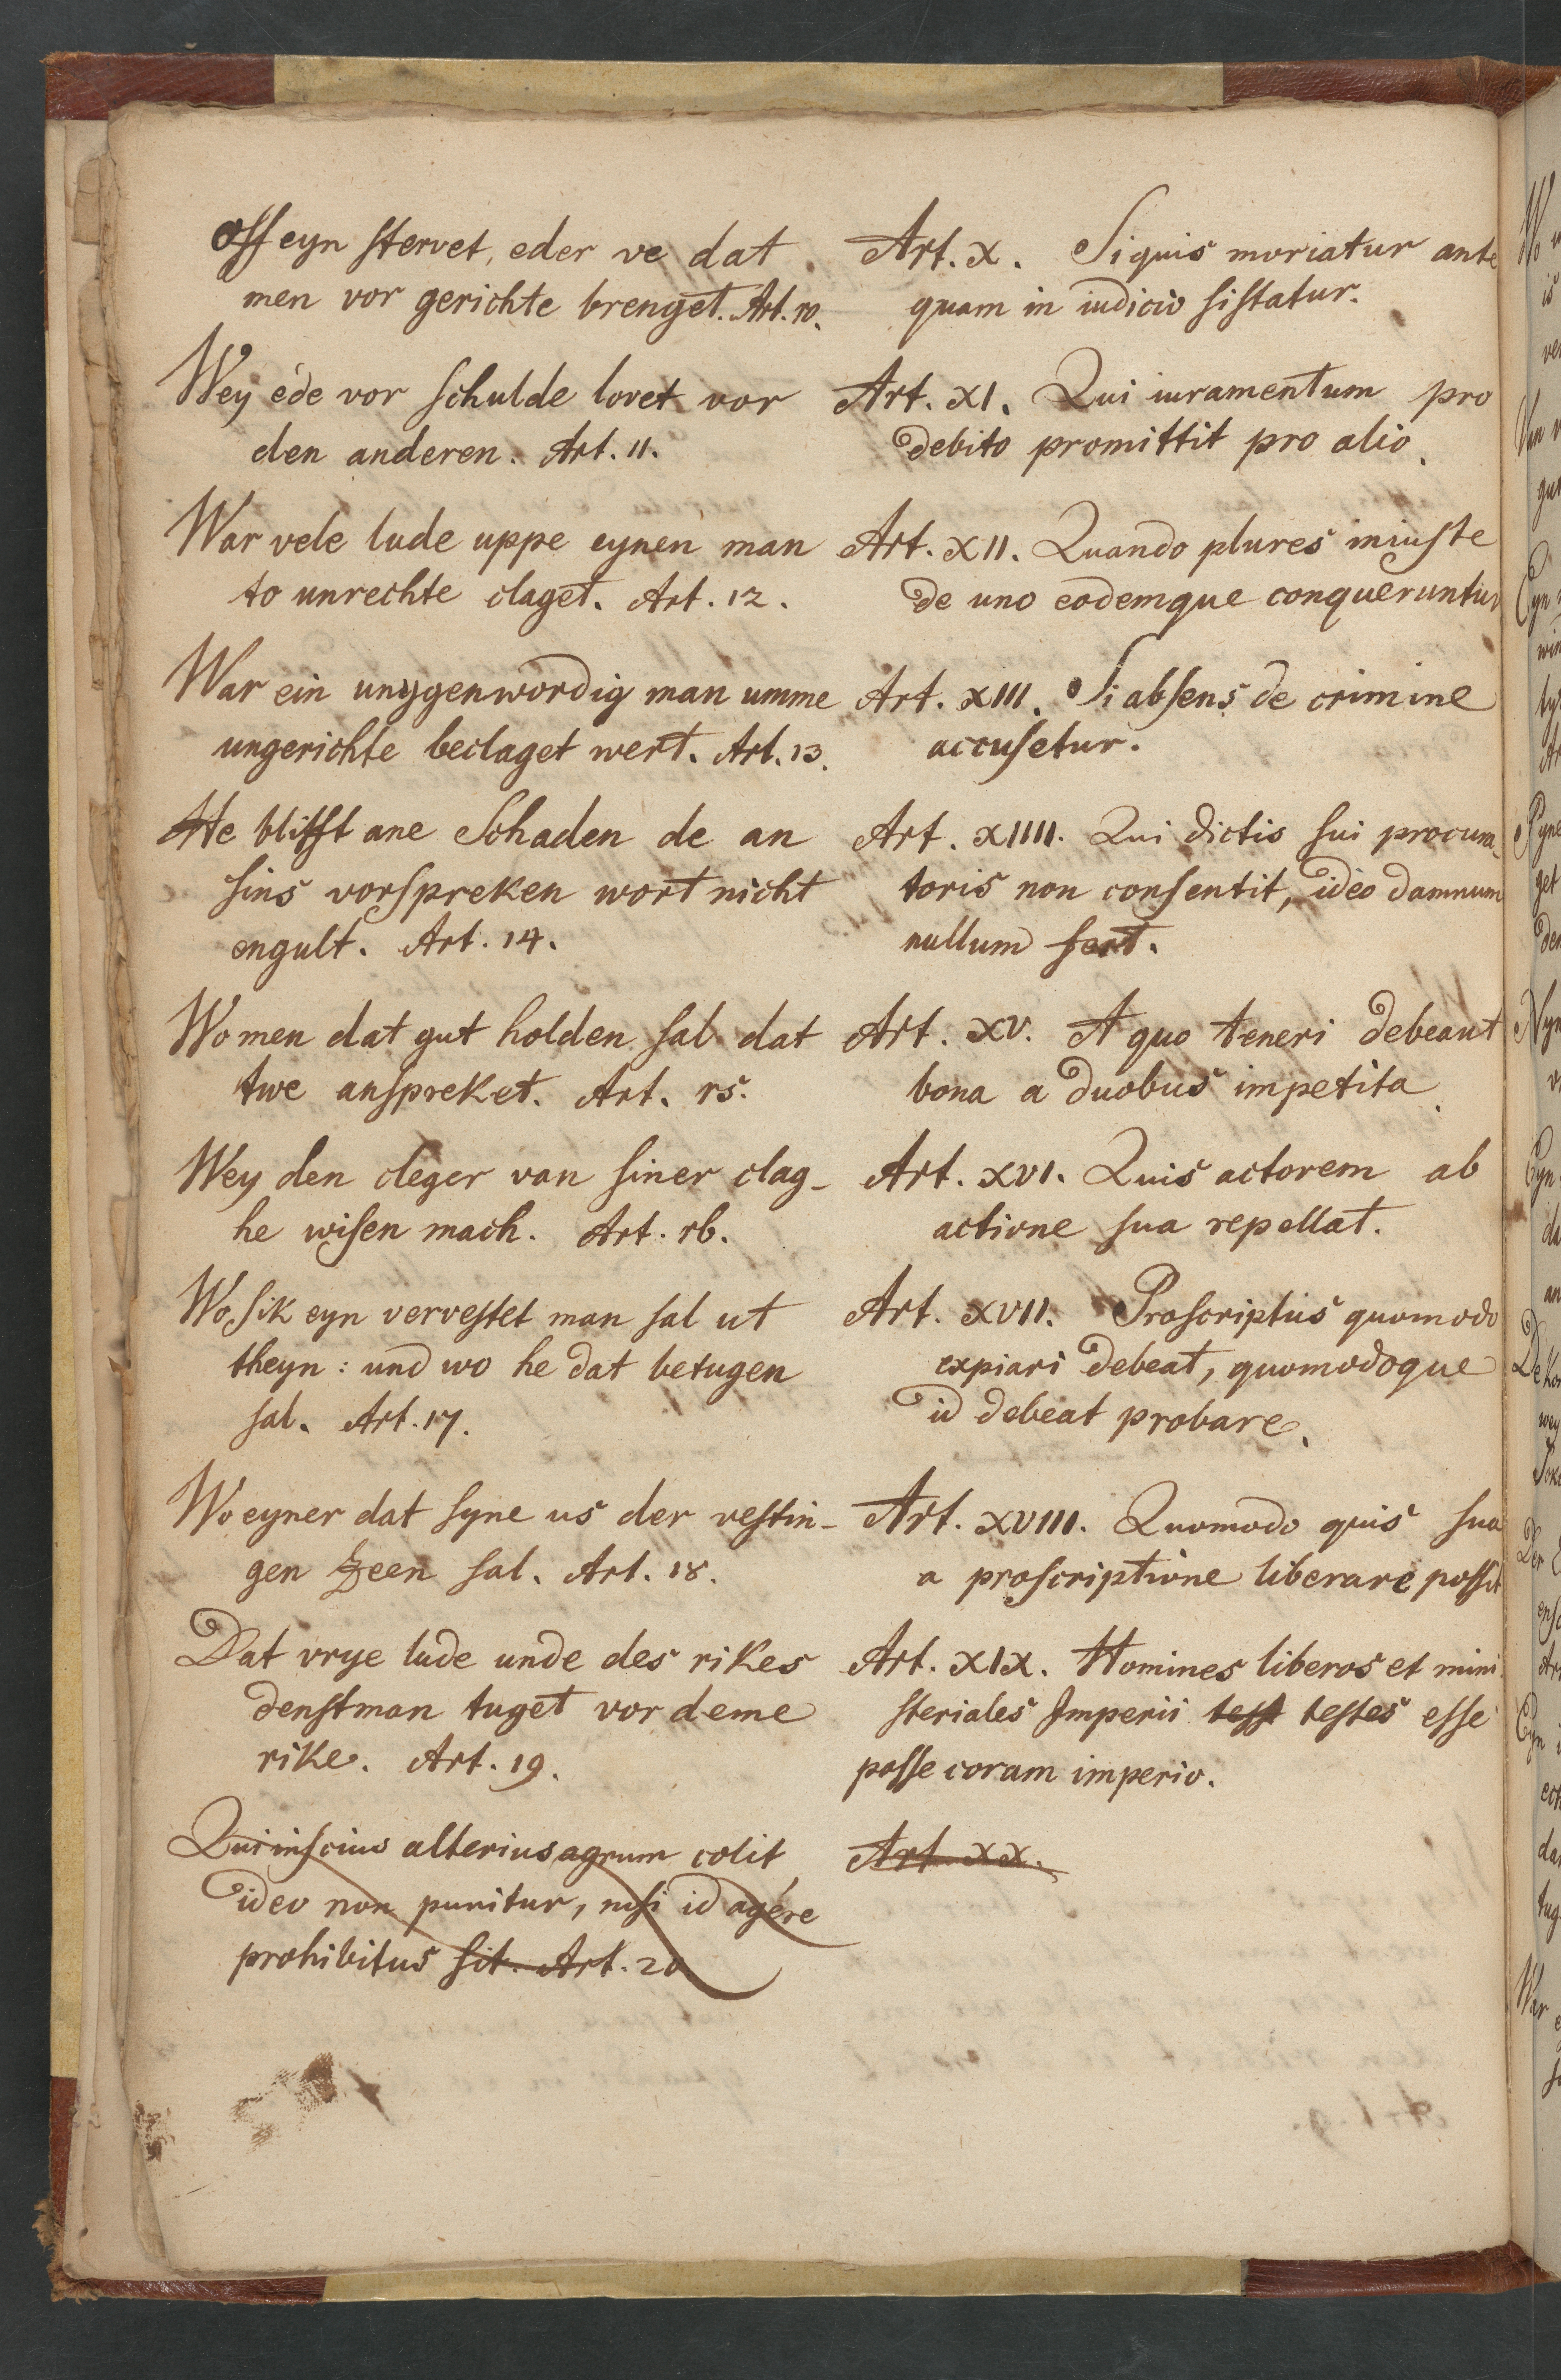 Off eyn stervet, eder ve dat
men vor gerichte brenget. Art. 10.
Wey ede vor schulde lovet vor
den anderen. Art. 11.
War vele lude uppe eynen man
to unrechte claget. Art. 12.
War ein unygenwordig man umme
ungerichte beclaget wert. Art. 13.
He blifft ane Schaden de an
sins vorspreken wort nicht
engult. Art. 14.
Wo men dat gut holden sal dat
twe anspreket. Art. 15.
Wey den cleger van siner clag-
he wisen mach. Art. 16.
Wo sik eyn vervestet man sal ut
theyn: und wo he dat betugen
sal. Art. 17.
Wo eyner dat syne us der vestin-
gen zeen sal. Art. 18.
Dat vrye lude unde des rikes
denstman tuget vor deme
rike. Art. 19.
Qui inscius alterius agrum colit
ideo non punitur, nisi id agere
prohibitus sit. Art. 20.
Art. X. Si quis moriatur ante
quam in iudicio sistatur.
Art. XI. Qui iuramentum pro
debito promittit pro alio.
Art. XII. Quando plures iniuste
de uno eodemque conqueruntur
Art. XIII. Si absens de crimine
accusetur.
Art. XIIII. Qui dictis sui procura-
toris non consentit, ideo damnum
nullum fert.
Art. XV. A quo teneri debeant
bona a duobus impetita.
Art. XVI. Quis actorem ab
actione sua repellat.
Art. XVII. Proscriptus quomodo
expiari debeat, quomodoque
id debeat probare.
Art. XVIII. Quomodo quis sua
a proscriptione liberare possit
Art. XIX. Homines liberos et mini-
steriales Imperii test testes esse
posse coram imperio.
Art. XX.